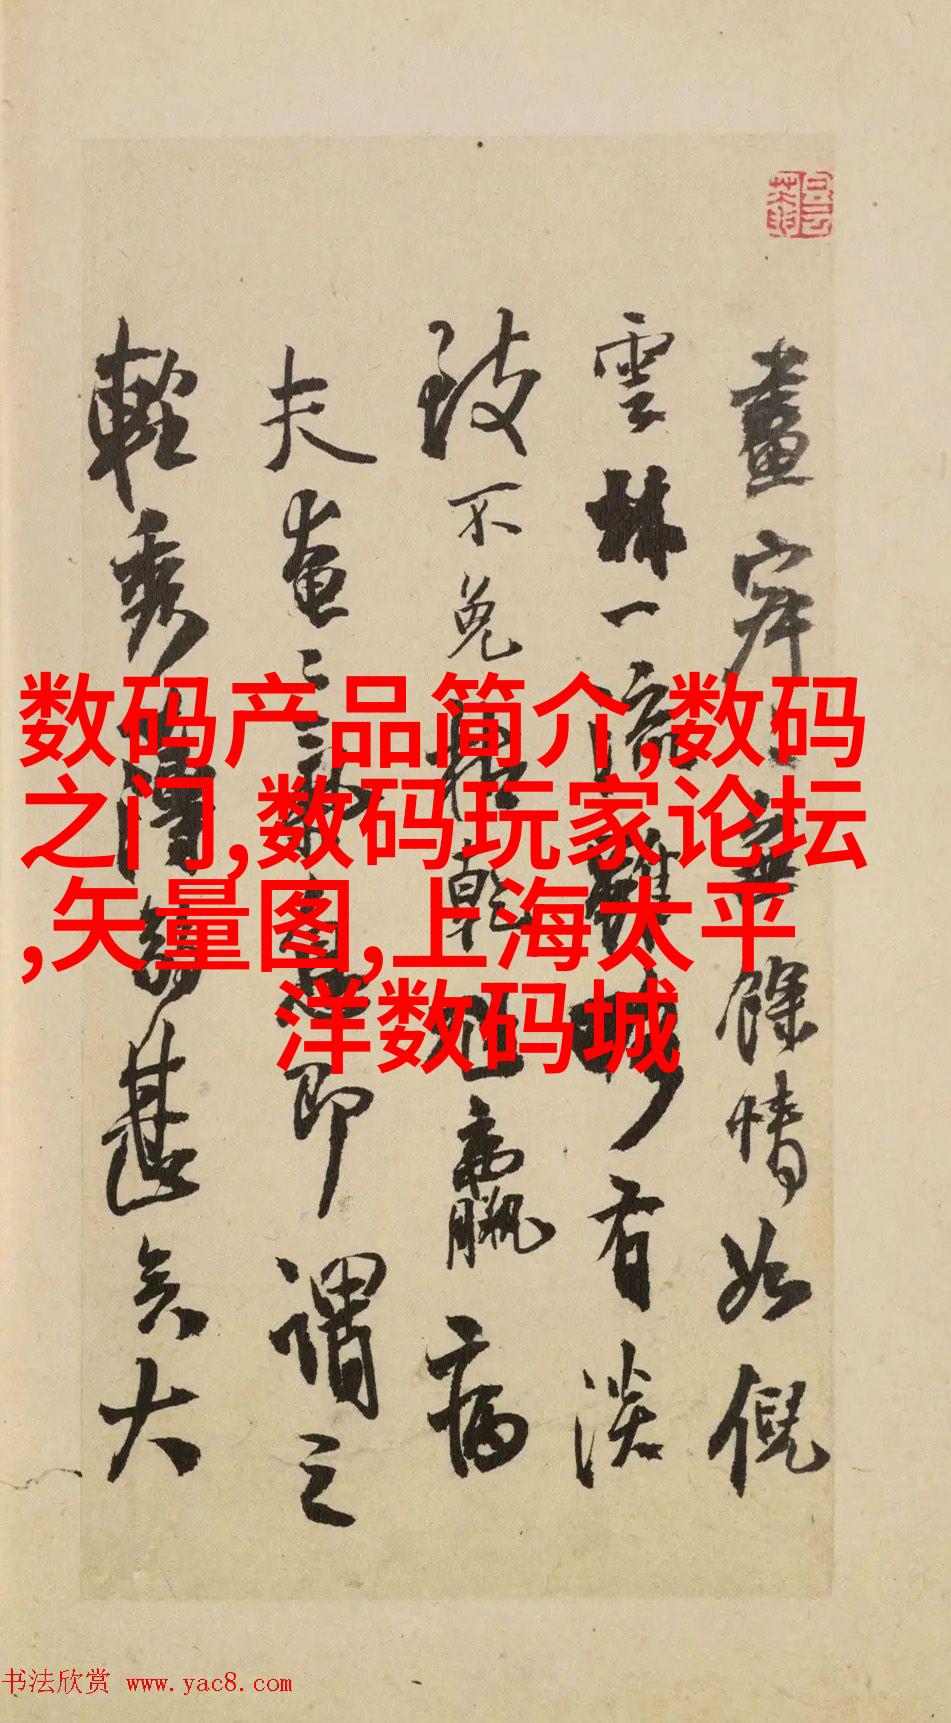 畫寂
餘情如倪
雲林一流雖
有淡
致不免枯乾
羸病
夫畫
即謂之
輕秀薄弱甚矣大
数码产品简介,数码
之门,数码玩家论坛
,矢量图,上海太平
洋数码城
书法欣赏 www.yac8.com